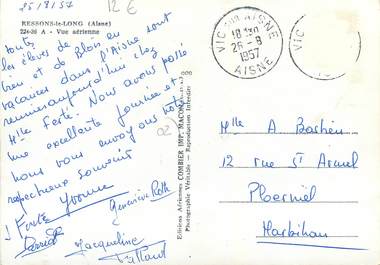 25/8/57
12 €
RESSONS-le-LONG (Aisne)
224-36 A - Vue aérienne
Toute
les élèves de Blois en
vacances dans l'Aisne sont
réunies aujourd'hui chez
Mlle Ferté. Nous avons passé
une excellente journée et
nous vous envoyons notre
respectueux souvenir
J Ferté
Yvonne
Geneviève Roth
Jacqueline
Editions Aériennes COMBIER IMP. MACON
Photographie Véritable - Reproduction Interdite
VIC SUR AISNE
18 H30
26-8
1957
AISNE
VIC
AISNE
Mlle A Bachén
12 rue St Armel
Ploermel
Morbihan